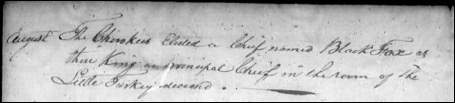 August The Cherokees Elected a Chief named Black Fox as
their King or principal Chief in the room of The
Little Turkey deceased